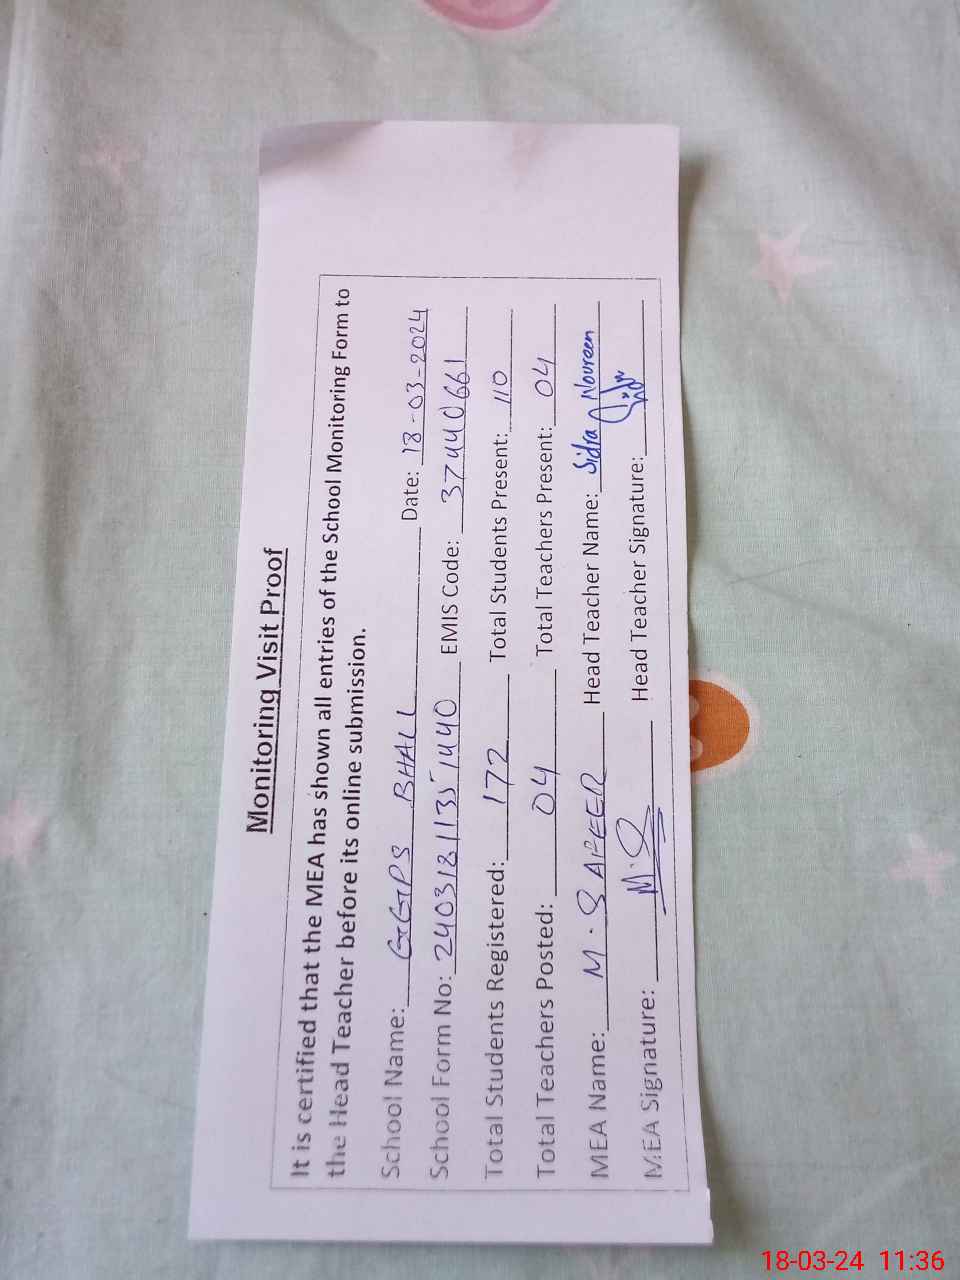 Monitoring Visit Proof
It is certified that the MEA has shown all entries of the School Monitoring Form to
the Head Teacher before its online submission.
School Name: GGPS BHALL Date: 18-03-2024
School Form No: 24031811351440 EMIS Code: 37440661
Total Students Registered: 172 Total Students Present: 110
Total Teachers Posted: 04 Total Teachers Present: 04
MEA Name: M. SAFEER Head Teacher Name: Sidra Noureen
MEA Signature: M.S Head Teacher Signature:
18-03-24 11:36